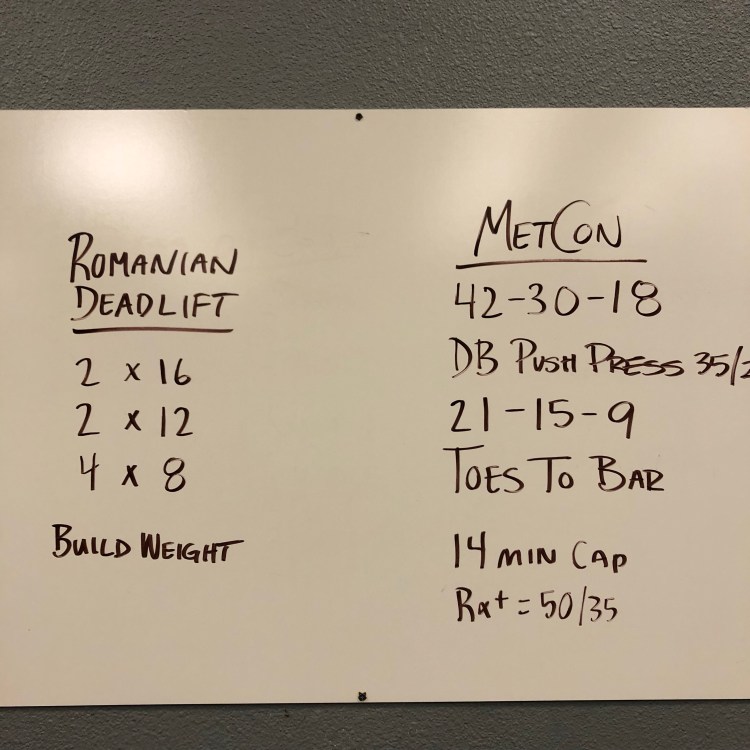 ROMANIAN
DEADLIFT
2 x 16
2 x 12
4 x 8
BUILD WEIGHT
METCON
42-30-18
DB PUSH PRESS 35/2
21-15-9
TOES TO BAR
14 MIN CAP
Rx+ = 50/35